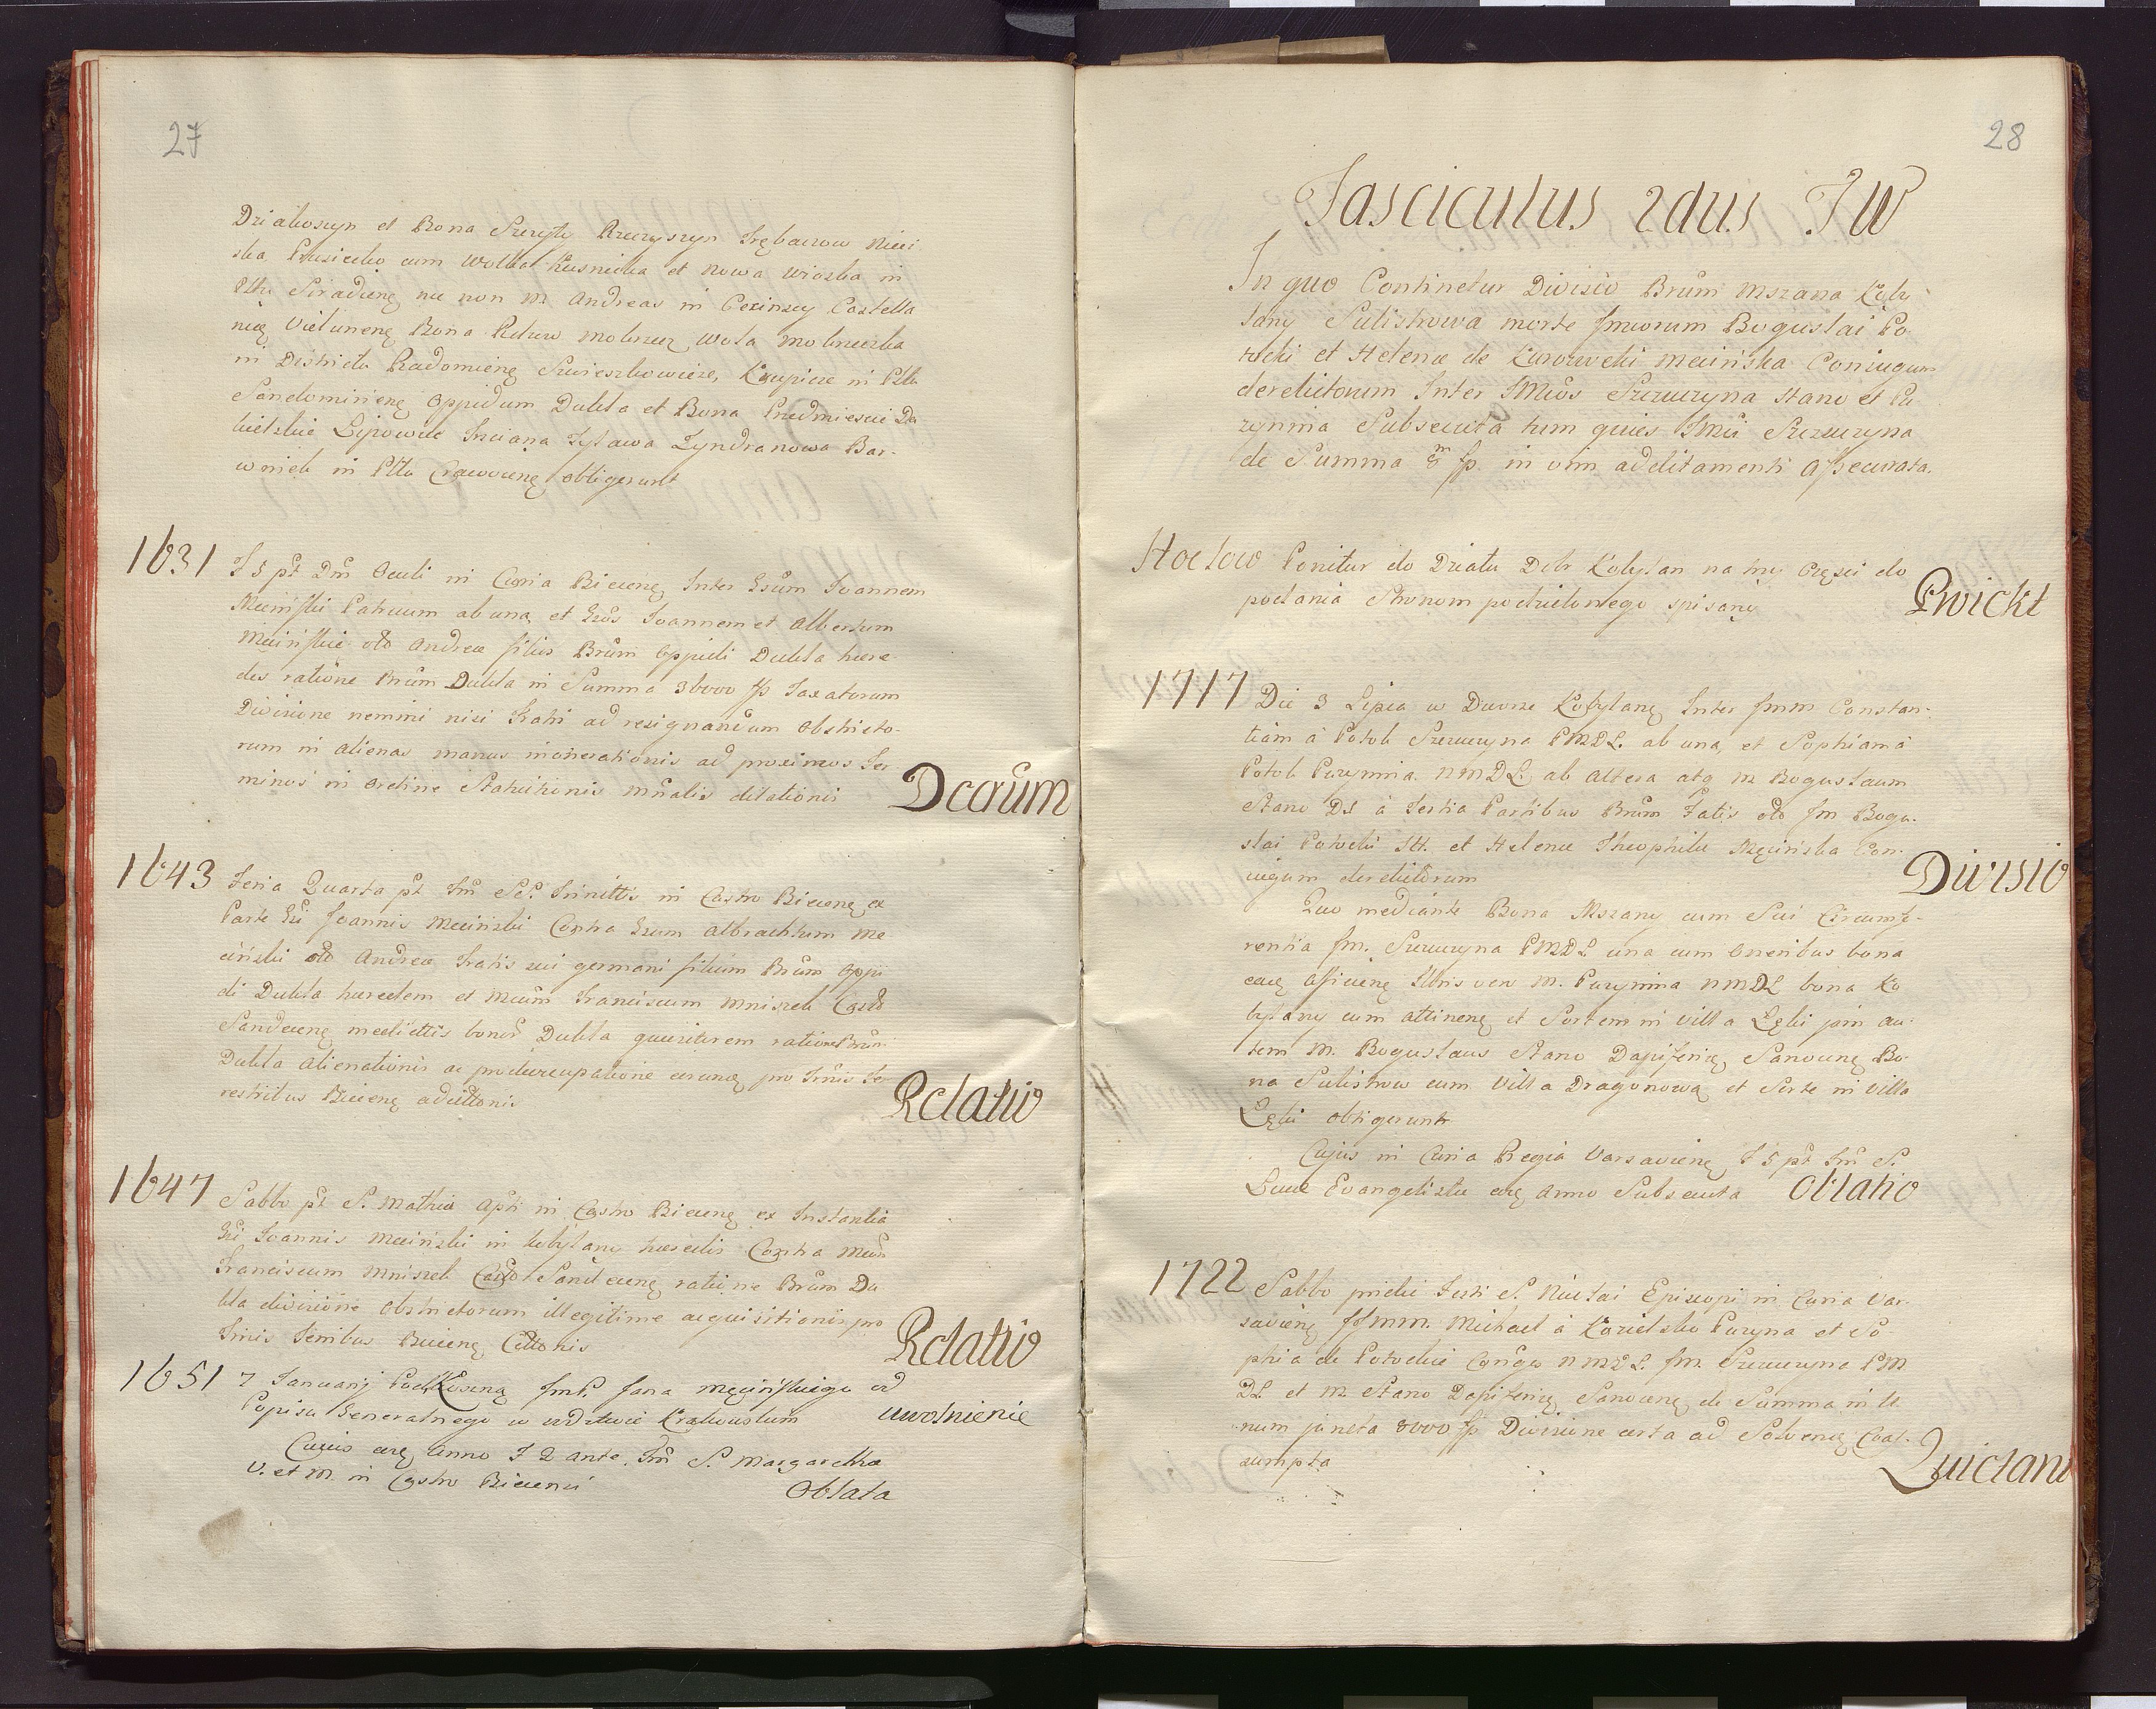 27
Działoszyn et Bona Szczyty Raczyszyn Trębaczow Nieci
ska Prusicko cum Wolka Kusnicka et Nowa Wioska in
Pttu Siradienę nec non M. Andreas in Cexinsey Castella
nicę Vielunenę Bona Wola
in Districtu Radomienę Swieszkowice, Krupicze in Pttu
Sandomirienę Oppidum Dukla et Bona Przedmiescie Du
kielskie Lipowice Trzciana Tylawa Zyndranowa Bar-
winek in Pttu obtigerunt
1631 F 5 pt Dm Oculi in Curia Biecenę Inter Gsum Joannem
Męciński Patruum ab una, et Gsos Joannem et Albertum
Męcińskie olo Andreæ filios Brum Oppidi Dukla hære-
des ratione Brum Dukla in Summa 36000 fp Taxatorum
Divisione nemini nisi Fratri ad resignandum obstricto-
rum in alienas manus inonerationis ad proximos Ter
minos in ordine Statuitionis dilationis Dcrum
1643 Feria Quarta pt Fm SS. Trinittis in Castro Biecenę ex
Parte Gsi Joannis Meciński Contra Gsum Albrachtum Me
ciński olo Andreæ Fratris sui germani filium Brum Oppi
di Dukla hæredem et Mcum Franciscum Mniszek Casto
Sandecenę medietttis bonor Dukla quæsitorem ratione Brum
Dukla alienationis ac prœoccupatione earumq pro Tmis Te
restribus Biecenę adcittonis Relatio
1647 Sabbo pt S. Mathiæ Apti in Castro Biecenę ex Instantia
Gsi Joannis Męciński in Kobylany hæredis Contra Mcum
Franciscum Mniszek Casto Sandecenę ratione Brum Du
kla divisione obstrictorum illegitime acquisitionis pro
Tmis Tenibus Biecenę Cittonis Relatio
1651 7 Januarij Pod JmP. Jana Męcińskiego od
Popisu Generalnego w wdztwie Krakowskim uwolnienie
Cujus eoę Anno F 2 ante Fm S. Margarethæ
V. et M. in Castro Biecensi Oblata
28
Fasciculus 2dus IW
In quo Continetur Divisio Brum Mszana Koby
lany Sulistrowa morte Jmiorum Bogusłai Po-
tocki et Helenæ de Kurozwęki Mecińska Coniugum
derelictorum Inter JMios Szczuczyna Stano et Pu
zynina Subsecuta tum quies Jmci Szczuczyna
de Summa 8 m fp. in vim additamenti Assecurata.
Hoc loco Ponitur do Działu Dobr Kobylan na trzy częsci do
podania Stronom podzielonego spisany Pwickt
1717 Die 3 Lipca w Dworze Kobylanę Inter Jmm Constan-
tiam à Potok Szczuczyna PMDL. ab una, et Sophiam à
Potok Puzynina NMDL. ab altera atq M Bogusłaum
Stano DS à Tertia Partibus Brum Fatis olo Jm Bogu-
slai Potocki SH. et Helenæ Theophilæ Męcińska Con-
iugum derelictorum Divisio
Quo mediante Bona Mszany cum Sui Circumfe-
rentia Jm. Szczuczyna PMDL una cum oneribus bona
eaę afficienę Illris vero M. Puzynina NMDL bona Ko
bylany cum attinenę et Sortem in Villa Lęki join au-
tem M. Bogusłaus Stano Dapiferię Sanocenę Bo-
na Sulistrow cum Villa Dragonową et Sorte in Villa
Lęki obtigerunt
Cujus in Curia Regia Varsavienę F 5 pt Fm S.
Lucæ Evangelistæ eoę Anno Subsecuta Oblatio
1722 Sabbo pridie Festi S. Nicolai Episcopi in Curia Var-
savienę JJmm. Michael à Kozielsko Puzyna et So-
phia de Potockie Conges NMDL. Jm. Szczuczyna PM
DL et M. Stano Dapiferię Sanocenę de Summa in U-
num juncta 8000 fp Divisione certa ad Solvenę Coas-
sumpta Quictatio